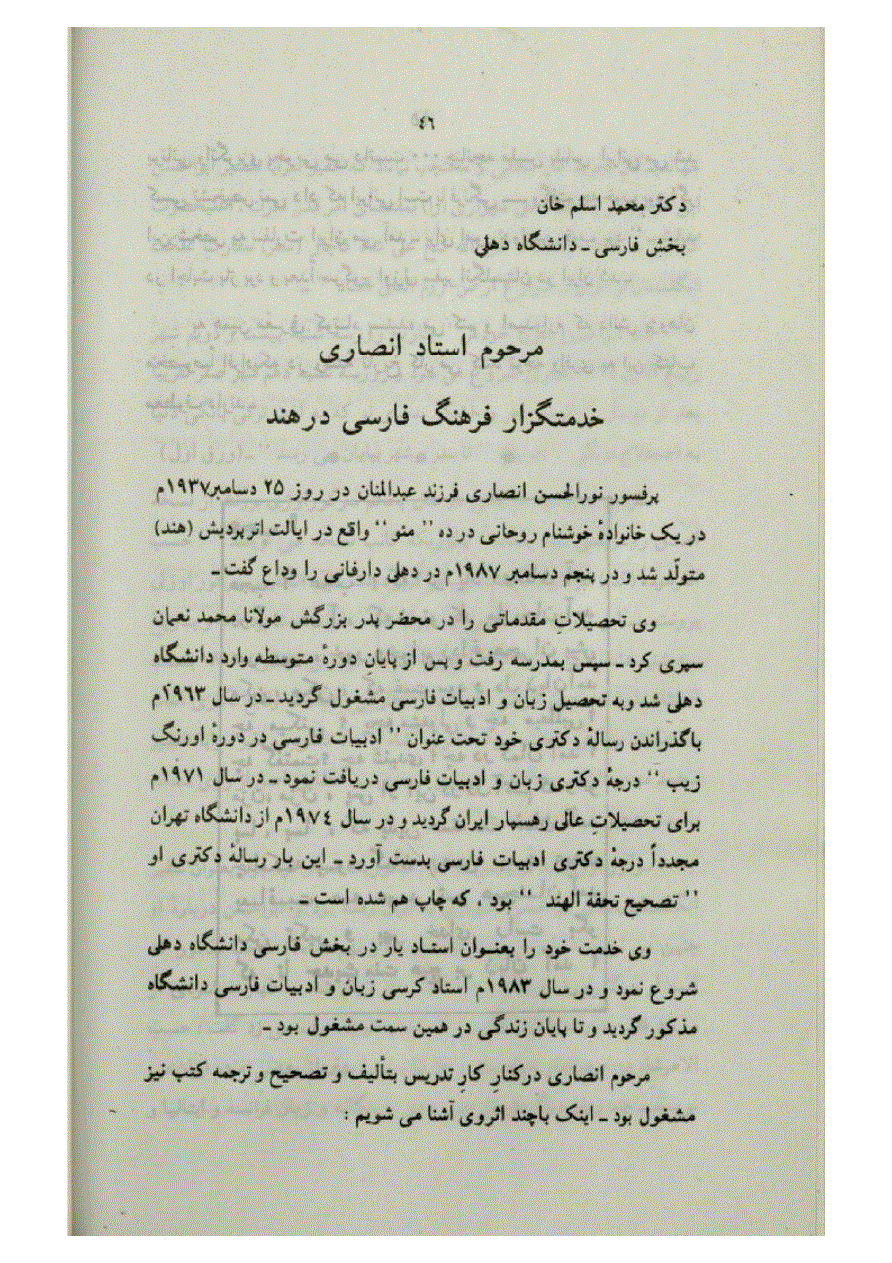 ٤٦
دکتر محمد اسلم خان
بخش فارسی ـ دانشگاه دهلی
مرحوم استاد انصاری
خدمتگزار فرهنگ فارسی در هند
پرفسور نورالحسن انصاری فرزند عبدالمنان در روز ۲۵ دسامبر۱۹۳۷م
در یک خانوادهٔ خوشنام روحانی در ده " مئو " واقع در ایالت اترپردیش (هند)
متولّد شد و در پنجم دسامبر ۱۹۸۷م در دهلی دارفانی را وداع گفت ـ
وی تحصیلاتِ مقدماتی را در محضر پدر بزرگش مولانا محمد نعمان
سپری کرد ـ سپس بمدرسه رفت و پس از پایانِ دورهٔ متوسطه وارد دانشگاه
دهلی شد وبه تحصیل زبان و ادبیات فارسی مشغول گردید ـ در سال ۱۹٦۳م
باگذراندن رسالهٔ دکتری خود تحت عنوان " ادبیات فارسی در دورهٔ اورنگ
زیب " درجهٔ دکتری زبان و ادبیات فارسی دریافت نمود ـ در سال ۱۹۷۱م
برای تحصیلاتِ عالی رهسپار ایران گردید و در سال ۱۹۷٤م از دانشگاه تهران
مجدداً درجهٔ دکتری ادبیات فارسی بدست آورد ـ این بار رسالهٔ دکتری او
" تصحیح تحفة الهند " بود، که چاپ هم شده است ـ
وی خدمت خود را بعنوان استاد یار در بخش فارسی دانشگاه دهلی
شروع نمود و در سال ۱۹۸۳م استاد کرسی زبان و ادبیات فارسی دانشگاه
مذکور گردید و تا پایان زندگی در همین سمت مشغول بود ـ
مرحوم انصاری درکنارِ کارِ تدریس بتألیف و تصحیح و ترجمه کتب نیز
مشغول بود ـ اینک باچند اثروی آشنا می شویم :